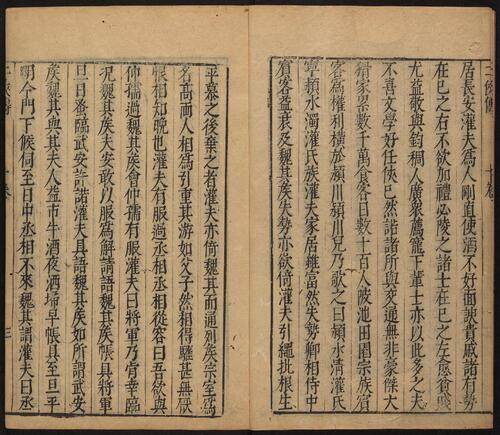 居長安灌夫爲人剛直使酒不好面諛貴戚諸有勢
在已之右不欲加禮必陵之諸士在已之左愈貧賤
尤益敬與鈞稠人廣衆薦寵下輩士亦以此多之夫
不喜文學好任俠已然諾諸所與交通無非豪傑大
猾家累數千萬食客日數十百人陂池田園宗族賓
客爲權利橫於潁川潁川兒乃歌之曰潁水清灌氏
寧潁水濁灌氏族灌夫家居雖富然失勢卿相侍中
賓客益衰及魏其矦失勢亦欲倚灌夫引繩批根生
平慕之後棄之者灌夫亦倚魏其而通列矦宗室爲
名高兩人相爲引重其游如父子然相得驩甚無厭
恨相知晚也灌夫有服過丞相丞相從容曰吾欲與
仲孺過魏其矦會仲孺有服灌夫曰將軍乃肯幸臨
况魏其矦夫安敢以服爲解請語魏其矦帳具將軍
旦日蚤臨武安許諾灌夫具語魏其矦如所謂武安
矦魏其與其夫人益市牛酒夜洒埽早帳具至旦平
明令門下候伺至日中丞相不來魏其謂灌夫曰丞
三